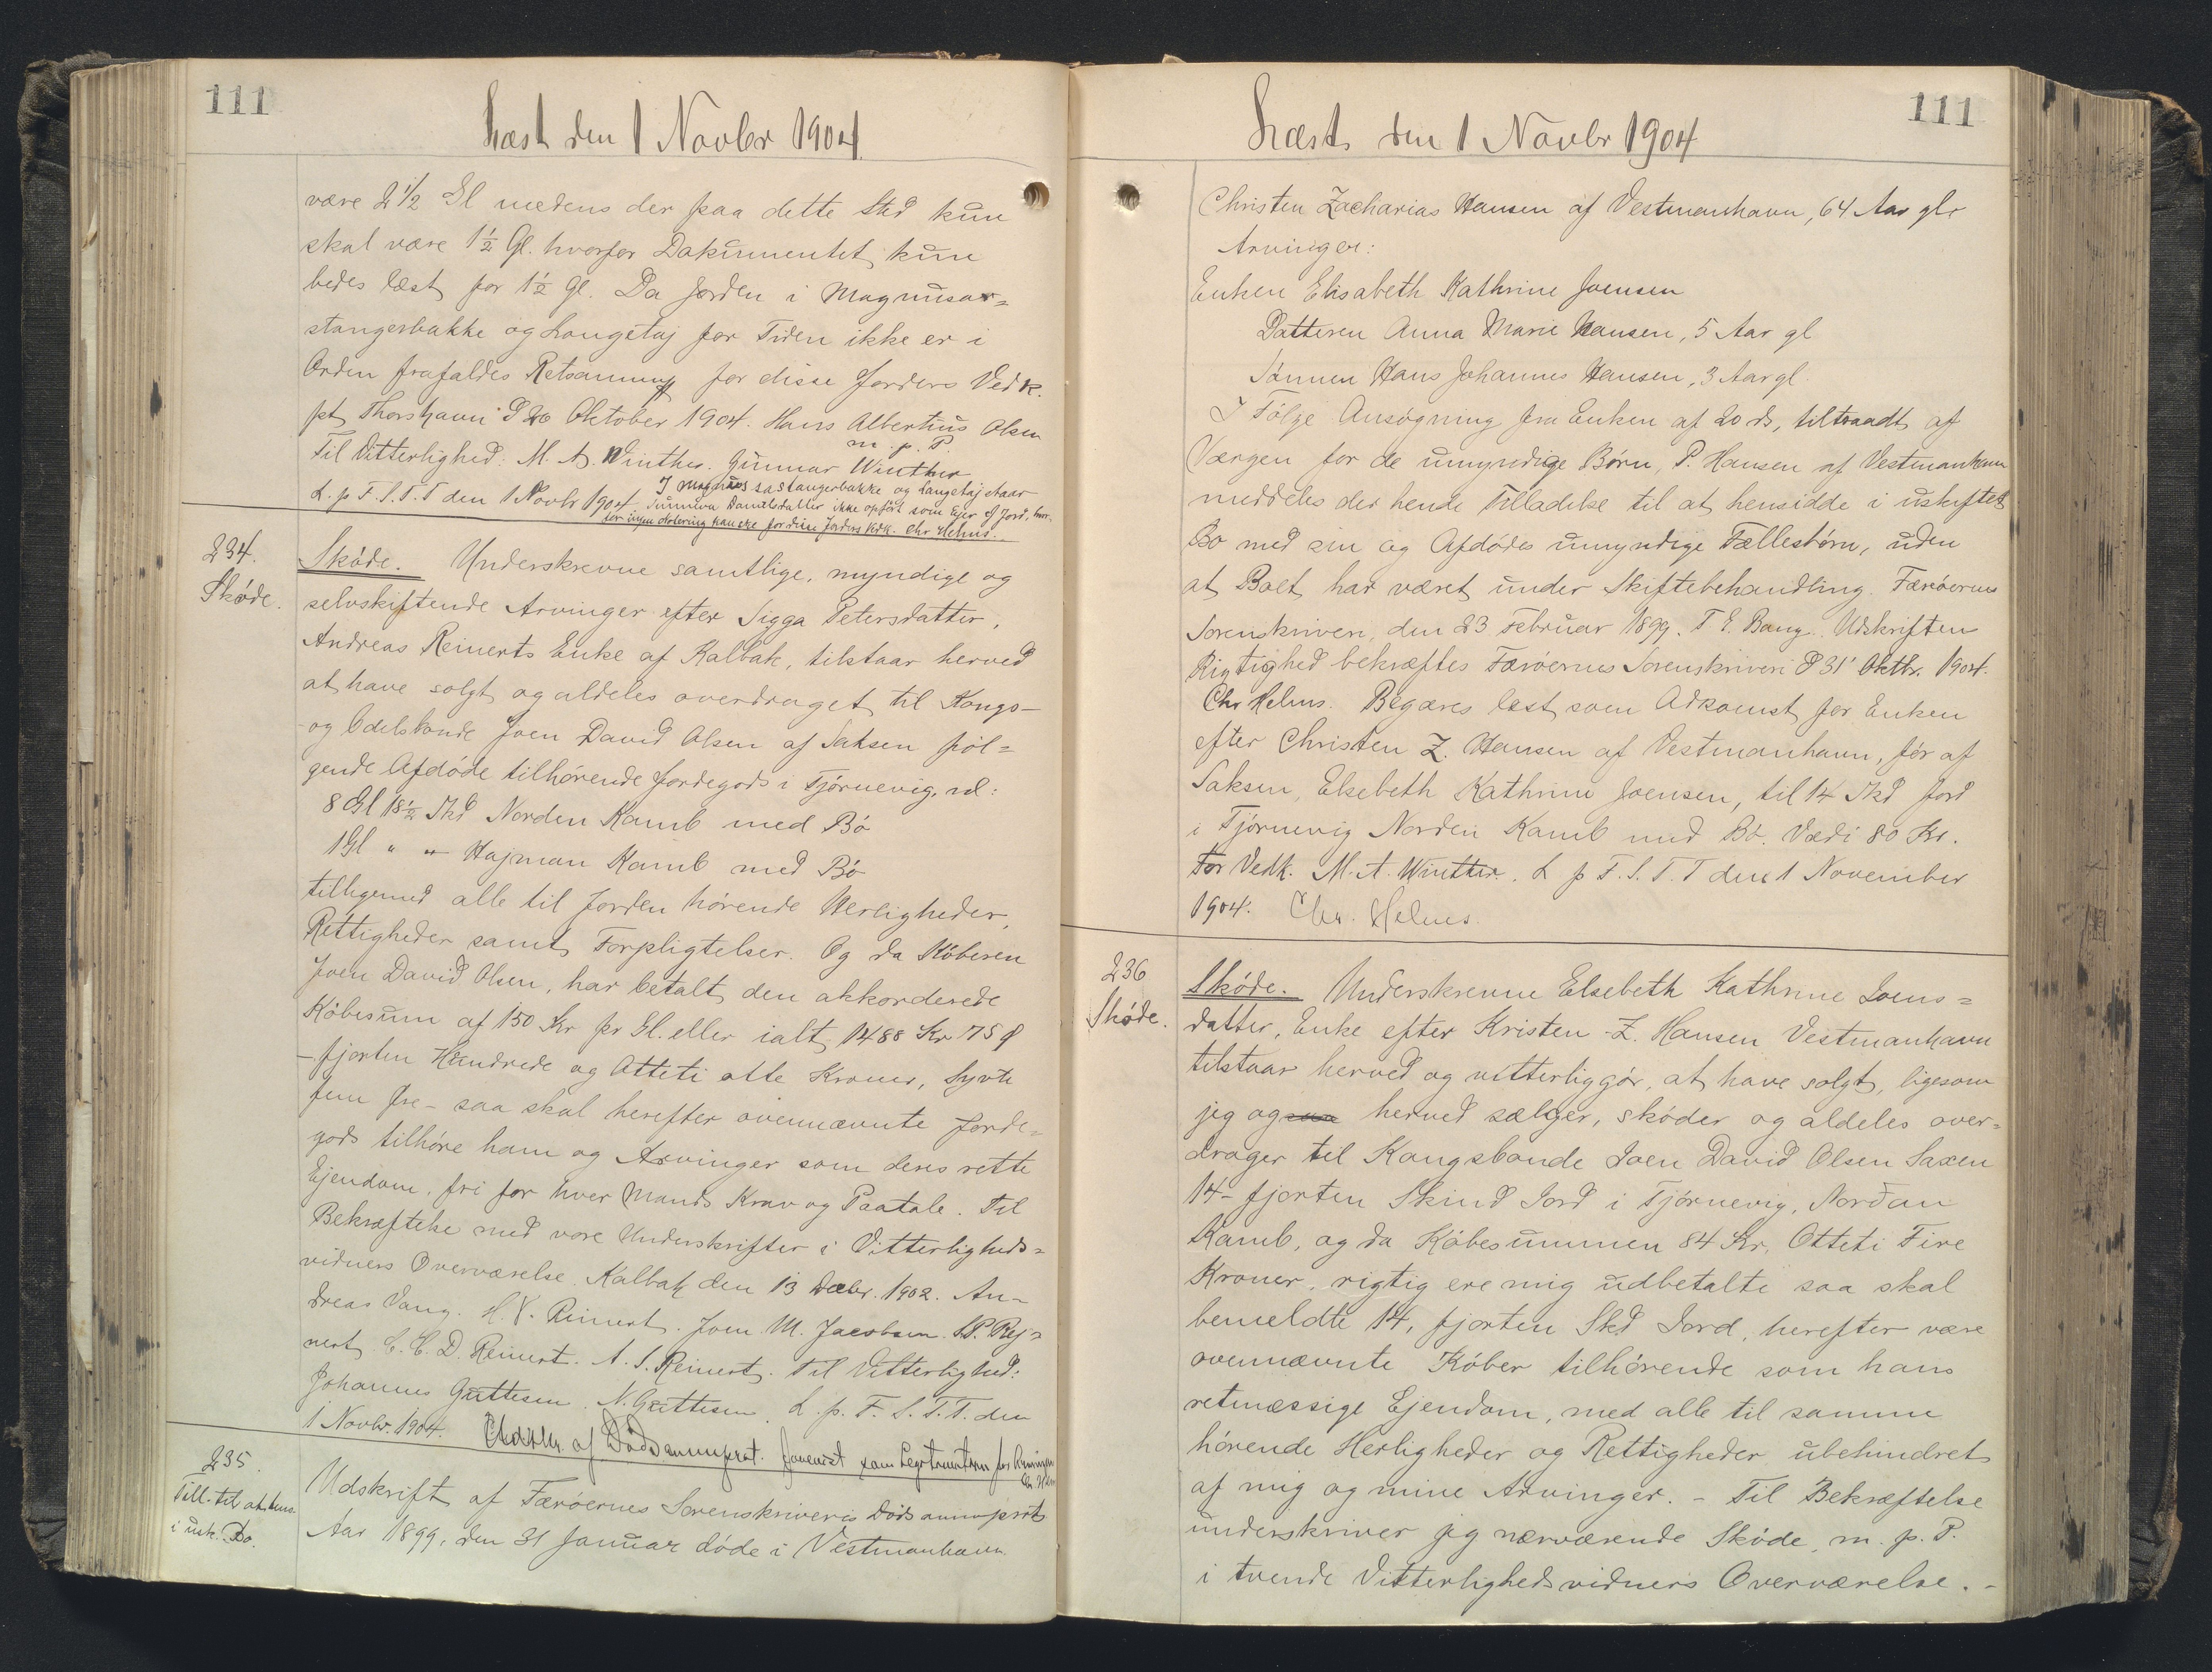 111
Læst den 1 Novbr 1904.
være 2 1/2 Gl medens der paa dette Sted kun
skal være 1 1/2 Gl. hvorfor Dokumentet kun
bedes læst for 1 1/2 Gl. Da Jorden i Magnusar=
stangerbakke og Langetøj for Tiden ikke er i
Orden frafaldes Retsanm for disse Jorders Vedk.
pt Thorshavn d 20 Oktober 1904. Hans Albertius Olsen
m. p. P.
Til Vitterlighed: M. A. Winther. Gunnar Winther
L. p F. S. T. T den 1 Novbr 1904. I Magnus sastangerbakke og Langetøj staar
Sunniva Danielsdatter ikke opført som Ejer af Jord, hvor-
for ingen Notering kan ske for disse Jorders Vedk. Chr Helms.
234.
Skøde.
Skøde. Underskrevne samtlige, myndige og
selvskiftende Arvinger efter Sigga Petersdatter,
Andreas Reinerts Enke af Kalbak, tilstaar herved
at have solgt og aldeles overdraget til Kongs-
og Odelsbonde Joen David Olsen af Saksen føl=
gende Afdøde tilhørende Jordegods i Tjørnevig, nl:
8 Gl 18 1/2 Skd Norden Kamb med Bø
1 Gl " " Hajman Kamb med Bø
tilligemed alle til Jorden hørende Herligheder,
Rettigheder samt Forpligtelser. Og da Køberen
Joen David Olsen, har betalt den akkorderede
Købesum af 150 Kr pr Gl. eller ialt 1488 Kr 75 Ø
- fjorten Hundrede og Otteti otte Kroner, Syvti
fem Øre - saa skal herefter ovennævnte Jorde=
gods tilhøre ham og Arvinger som deres rette
Ejendom, fri for hver Mands Krav og Paatale. Til
Bekræftelse med vore Underskrifter i Vitterligheds=
vidners Overværelse. Kalbak den 13 Decbr. 1902. An-
dreas Vang. H. V. Reinert. Joen M. Jacobsen. S.P. Rej=
nert. C. C. D. Reinert. A. S. Reinert. Til Vitterlighed:
Johannes Guttesen. N. Guttesen. L. p. F. S. T. T. den
1 Novbr. 1904. af Dødsanmprot. forevist som Legitimation for Arvingerne
Chr Helms
235.
Till. til at hens.
i usk. Bo.
Udskrift af Færøernes Sorenskriveris Dødsanmprot.
Aar 1899, den 31 Januar døde i Vestmanhavn
111
Læst den 1 Novbr 1904
Christen Zacharias Hansen af Vestmanhavn, 64 Aar gl.
Arvinger:
Enken Elisabeth Kathrine Joensen
Datteren Anna Marie Hansen, 5 Aar gl
Sønnen Hans Johannes Hansen, 3 Aar gl.
I Følge Ansøgning fra Enken af 20 ds, tiltraadt af
Værgen for de umyndige Børn, P. Hansen af Vestmanhavn
meddeles der hende Tilladelse til at hensidde i uskiftet
Bo med sin og Afdødes umyndige Fællesbørn, uden
at Boet har været under Skiftebehandling. Færøernes
Sorenskriveri, den 23 Februar 1899. T E. Bang. Udskriftens
Rigtighed bekræftes Færøernes Sorenskriveri d 31' Oktbr. 1904.
Chr Helms. Begæres læst som Adkomst for Enken
efter Christen Z. Hansen af Vestmanhavn, før af
Saksen, Elsebeth Kathrine Joensen, til 14 Skd Jord
i Tjørnevig Norden Kamb med Bø. Værdi 80 Kr.
For Vedk. M. A. Winther. L p F. S. T. T den 1 November
1904. Chr. Helms.
236
Skøde.
Skøde. Underskrevne Elsebeth Kathrine Joens=
datter, Enke efter Kristen Z. Hansen Vestmanhavn
tilstaar herved og vitterliggør, at have solgt, ligesom
jeg og herved sælger, skøder og aldeles over=
drager til Kongsbonde Joen David Olsen Saxen
14- fjorten Skind Jord i Tjørnevig, Nordan
Kamb, og da Købesummen 84 Kr, Otteti Fire
Kroner, rigtig ere mig udbetalte saa skal
bemeldte 14, fjorten Skd Jord, herefter være
ovennævnte Køber tilhørende som hans
retmæssige Ejendom, med alle til samme
hørende Herligheder og Rettigheder ubehindret
af mig og mine Arvinger. - Til Bekræftelse
underskriver jeg nærværende Skøde, m. p. P.
i tvende Vitterlighedsvidners Overværelse. -